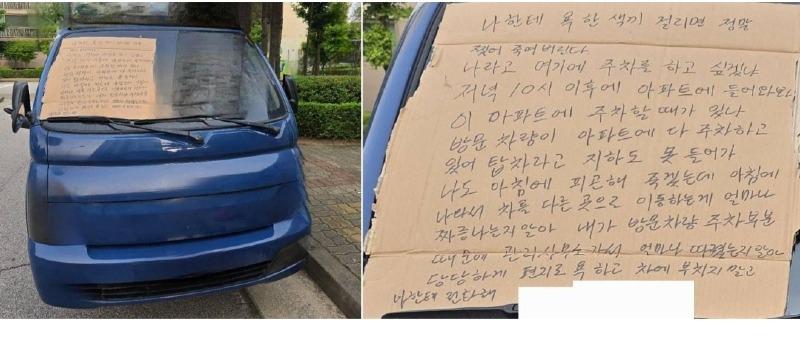 나한테 욕 한 색끼 걸리면 정말
찢어 죽여 버린다
나라고 여기에 주차를 하고 싶겠냐
저녁 10시 이후에 아파트에 들어와봐
이 아파트에 주차할 때가 있나
방문 차량이 아파트에 다 주차하고
있어 탑차라고 지하도 못 들어가
나도 아침에 피곤해 죽겠는데 아침에
나와서 차를 다른 곳으로 이동하는게 얼마나
짜증나는지 알아 내가 방문차량 주차부분
때문에 관리사무소가서 얼마나 따졌는지 알아
당당하게 편지로 욕하고 차에 붙치지 말고
나한테 전화해